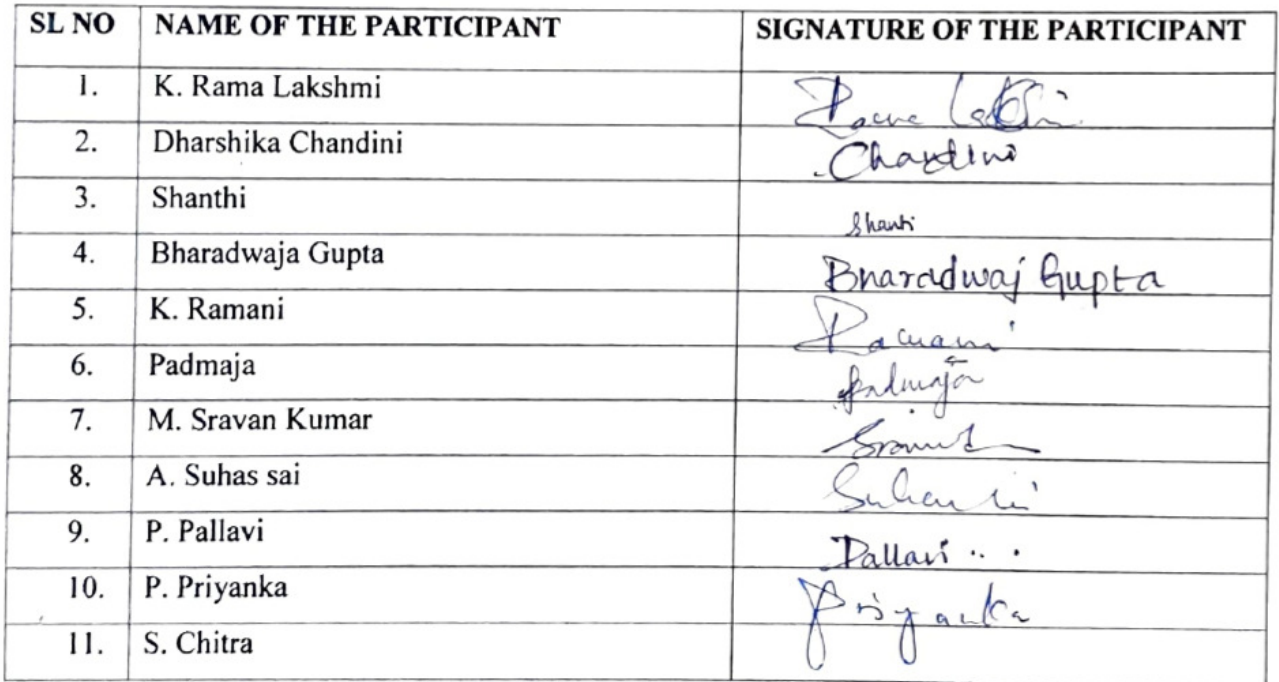 SL NO NAME OF THE PARTICIPANT SIGNATURE OF THE PARTICIPANT
1. K. Rama Lakshmi Rama
2. Dharshika Chandini Chandini
3. Shanthi Shanti
4. Bharadwaja Gupta Bharadwaj Gupta
5. K. Ramani Ramani
6. Padmaja Padmaja
7. M. Sravan Kumar
8. A. Suhas sai
9. P. Pallavi Pallavi
10. P. Priyanka Priyanka
11. S. Chitra